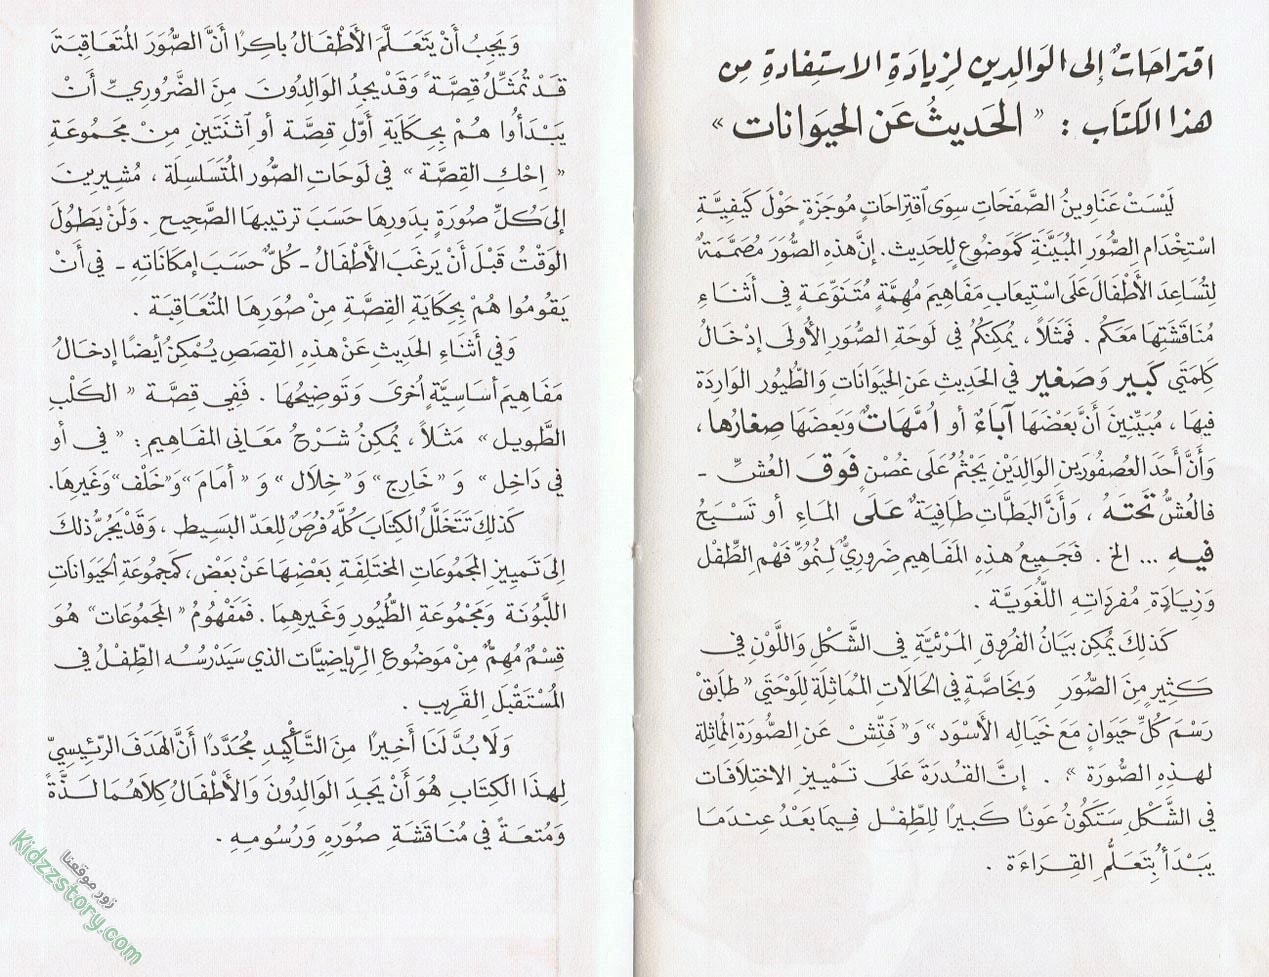 اقتراحاتٌ إلى الوَالِدين لِزيادَةِ الاستِفادةِ مِن
هذا الكتاب : « الحَديثُ عَن الحيَوانات »
لَيْسَتْ عَناوينُ الصَّفَحَاتِ سِوَى ٱقتِراحَاتٍ مُوجَزَةٍ حَوْلَ كَيفِيَّةِ
استِخْدَامِ الصُّوَرِ المُبَيَّنَةِ كَمَوضُوعٍ للحَديث. إنَّ هذِهِ الصُّوَرَ مُصَمَّمَةٌ
لِتُسَاعِدَ الأَطْفَالَ عَلَى اسْتِيعَابِ مَفَاهِيمَ مُهِمَّةٍ مُتَنَوِّعَةٍ في أَثنَاءِ
مُنَاقَشَتِهَا مَعَكُم . فَمَثَلاً ، يُمكِنُكُم في لَوحَةِ الصُّوَرِ الأُولَى إدْخَالُ
كَلِمَتَي كَبير وَصَغير في الحَديثِ عَنِ الحَيَوانَاتِ وَالطُّيُورِ الوَارِدَةِ
فيهَا ، مُبَيِّنِينَ أَنَّ بَعْضَهَا آبَاءٌ أو أُمَّهَاتٌ وَبَعضَهَا صِغَارُها ،
وَأَنَّ أَحَدَ العُصفُورَينِ الوَالِدَيْنِ يَجْثُمُ عَلَى غُصْنٍ فَوقَ العُشِّ -
فَالعُشُّ تَحتَهُ ، وَأَنَّ البَطَّاتِ طَافِيَةٌ عَلَى المَاءِ أو تَسْبَحُ
فيهِ ... الخ . فَجَميعُ هذِهِ المَفَاهِيمِ ضَرُورِيٌّ لِنُمُوِّ فَهْمِ الطِّفْلِ
وَزِيَادَةِ مُفرَدَاتِهِ اللُّغَوِيَّة .
كَذلِكَ يُمكِن بَيَانُ الفُروقِ المَرْئِيَّةِ في الشَّكْلِ وَاللَّوْنِ في
كَثيرٍ مِنَ الصُّوَر وَبِخَاصَّةٍ في الحَالَاتِ المُمَاثِلَةِ لِلَوْحَتَي « طابِقْ
رَسْمَ كُلِّ حَيوَانٍ مَعَ خَيَالِهِ الأَسْوَد» وَ« فَتِّشْ عَنِ الصُّورَةِ المُمَاثِلَةِ
لهذِهِ الصُّورَة » . إنَّ القُدرَةَ عَلَى تَمْيِيزِ الاختِلَافَات
في الشَّكْلِ سَتَكُونُ عَونًا كَبيرًا لِلطِّفْلِ فِيمَا بَعْدُ عِندَمَا
يَبْدَأُ بِتَعَلُّمِ القِرَاءَة .
وَيَجِبُ أَنْ يَتَعَلَّمَ الأَطْفَالُ باكِرًا أَنَّ الصُّوَرَ المُتَعَاقِبَةَ
قَدْ تُمَثِّلُ قِصَّةً وَقَدْ يَجِدُ الوَالِدُونَ مِنَ الضَّرُورِيِّ أَنْ
يَبْدَأُوا هُمْ بِحِكَايَةِ أَوَّلِ قِصَّة أو ٱثنَتَينِ مِنْ مَجمُوعَةِ
« اِحْكِ القِصَّة » في لَوحَاتِ الصُّوَرِ المُتَسَلسِلَة ، مُشِيرينَ
إلى كُلِّ صُورَةٍ بِدَورِهَا حَسَبَ تَرتيبِهَا الصَّحيح . وَلَنْ يَطُولَ
الوَقْتُ قَبْلَ أَنْ يَرغَبَ الأَطْفَالُ - كُلٌّ حَسَبَ إمكَانَاتِهِ - في أَنْ
يَقُومُوا هُمْ بِحِكَايَةِ القِصَّةِ مِنْ صُوَرِهَا المُتَعَاقِبَة .
وَفي أَثنَاءِ الحَديثِ عَنْ هذِهِ القِصَصِ يُمْكِنُ أَيضًا إدخَالُ
مَفَاهِيمَ أَسَاسِيَّةٍ أُخرَى وَتَوضِيحُهَا . فَفِي قِصَّة « الكَلْبِ
الطَّويل » مَثَلاً ، يُمكِنُ شَرْحُ مَعَاني المَفَاهِيم : « في أو
في دَاخِل » وَ « خَارِج » وَ« خِلَال » وَ « أمَامَ » وَ« خَلْف » وَغَيرِهَا.
كَذلِكَ تَتَخَلَّلُ الكِتَابَ كُلَّهُ فُرَصٌ لِلعَدِّ البَسيط ، وَقَدْ يَجُرُّ ذلكَ
إلى تَمييزِ المَجمُوعَاتِ المُختَلِفَةِ بَعْضِهَا عَنْ بَعْض، كَمَجمُوعَةِ الحَيَوانَاتِ
اللَّبُونَة وَمَجْمُوعَةِ الطُّيُورِ وَغَيرِهِمَا . فَمَفْهُومُ « المَجمُوعَات » هُوَ
قِسْمٌ مُهِمٌّ مِنْ مَوضُوعِ الرِّيَاضِيَّاتِ الذي سَيَدْرُسُهُ الطِّفْلُ في
المُسْتَقبَلِ القَريب .
وَلَا بُدَّ لَنَا أَخيرًا مِنَ التَّأْكِيدِ مُجَدَّدًا أَنَّ الهَدَفَ الرَّئيسِيَّ
لِهذَا الكِتَابِ هُوَ أَنْ يَجِدَ الوَالِدُونَ وَالأَطْفَالُ كِلَاهُمَا لَذَّةً
وَمُتعَةً في مُنَاقَشَةِ صُوَرِهِ وَرُسُومِهِ .
زور موقعنا
Kidzzstory.com